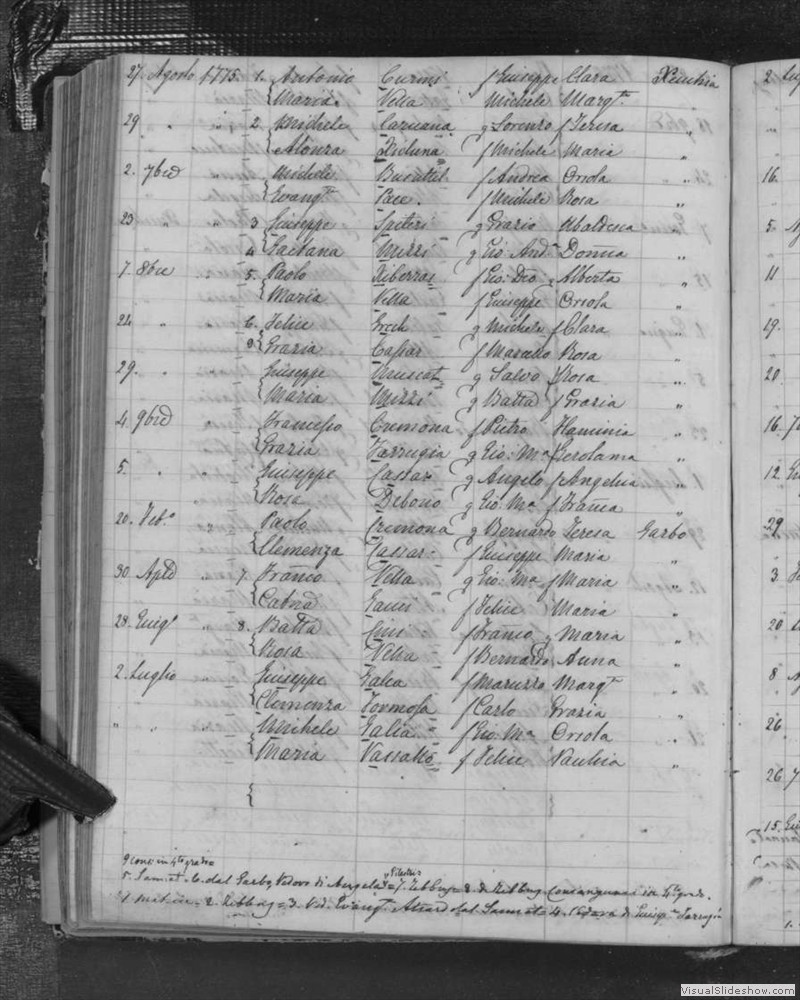 27. Agosto 1775. 1. Antonio Curmi f Giuseppe Clara Xeuchia
Maria Vella Michele Margta
29 " " 2. Michele Caruana q Lorenzo f Teresa "
Alonza f Michele Maria "
2. 7bre Michele Buruttil f Andrea Orsola "
Evangta Pace. f Michele Rosa "
23 " " 3 Giuseppe Spiteri q Grazio Ubaldesca "
4 Gaetana Mizzi q Gio: Anda Domca "
7. 8bre 5. Paolo Xiberras f Gio: Deo Alberta "
Maria Vella f Giuseppe Orsola "
24 " 6. Felice Grech q Michele f Clara "
9 Grazia Cassar f Marcello Rosa "
29. " Giuseppe Muscat q Salvo f Rosa "
Maria Mizzi q Batta f Grazia "
4. 9bre Francesco Cremona f Pietro Flaminia "
Grazia Farrugia q Gio: Ma f Gerolama "
5. " " Giuseppe Cassar q Angelo f Angelica "
Rosa Debono q Gio: Ma f Franca "
20. Feb.o Paolo Cremona q Bernardo Teresa Garbo
Clemenza Cassar f Giuseppe Maria "
30. Aple 7. Franco Vella q Gio: Ma f Maria "
Catna Gauci f Felice Maria "
28. Giugo " 8. Batta Cini f Franco Maria "
Rosa Vella f Bernardo Anna "
2. Luglio " Giuseppe Galea f Maruzzo Margta "
Clemenza Formosa f Carlo Grazia "
" " Michele Galia f Gio: Ma Orsola "
Maria Vassallo f Felice Paulica "
9 Cons: in 4to grado
5. Samet. 6. dal Garbo, Vedovo di Angela 7. Zebbug = 8. di Zebbug Consanguinei in 4to grado.
1. = 2. Zebbug = 3. Ved. Evangta Attard dal Samet = 4. Vedova di Giusepe Farrugia
2. Lug
16.
5. A
11
19.
20.
16.
12.
29
3.
20
8
26
26
15.
1.
VisualSlideshow.com